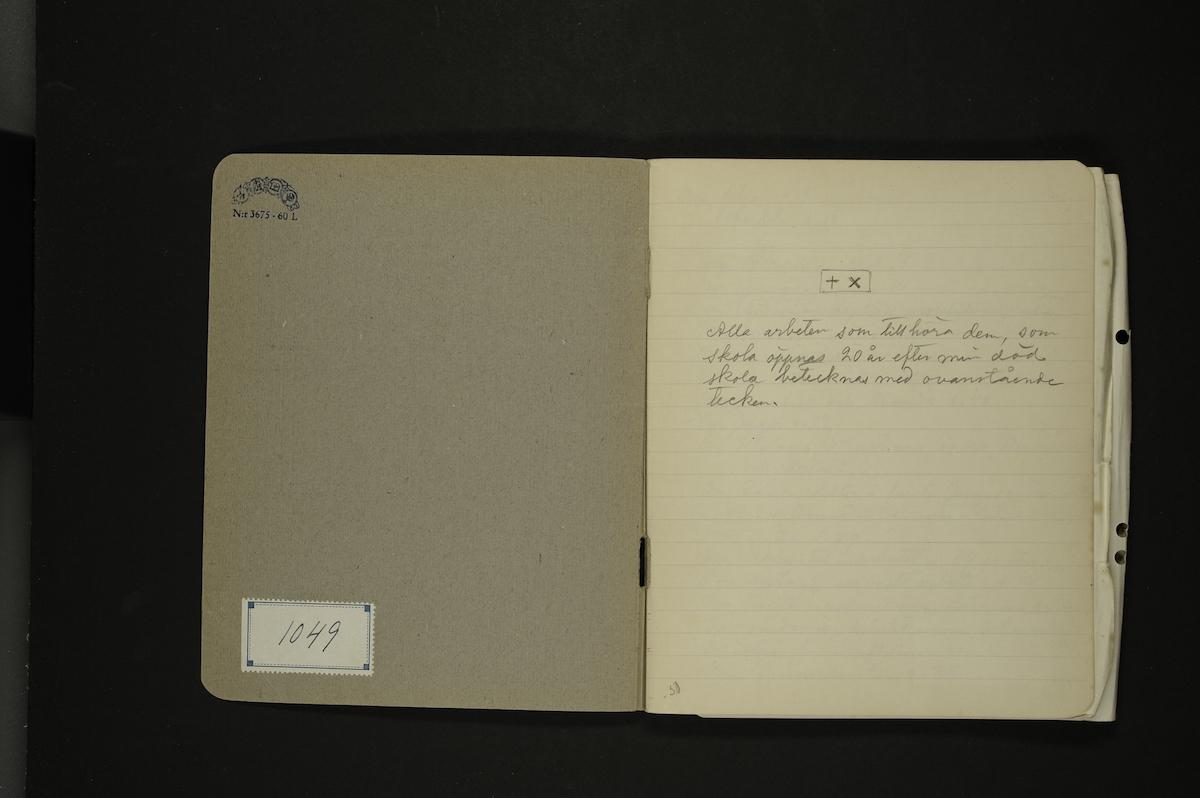 N:r 3675 - 60 L
1049
+ x
Alla arbeten som tillhöra dem, som
skola öppnas 20 år efter min död
skola betecknas med ovanstående
tecken.